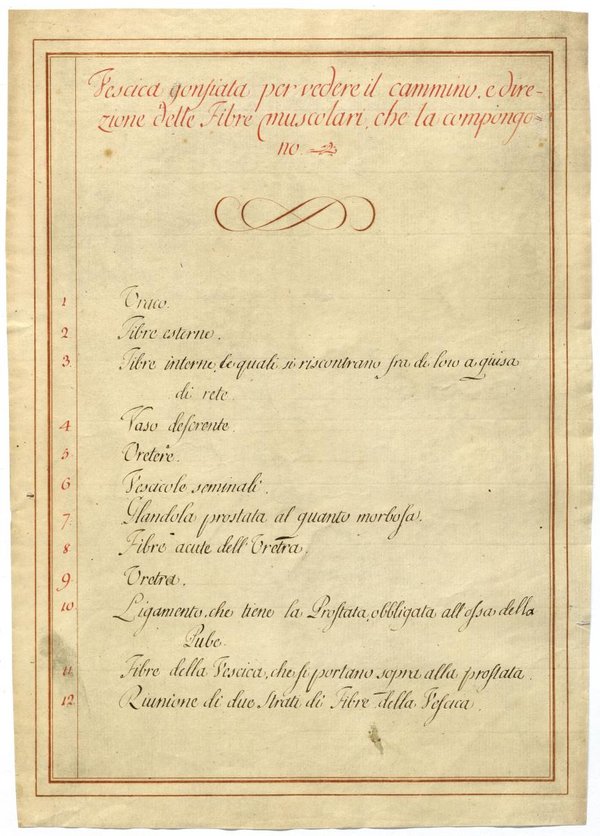 Vescica gonfiata per vedere il cammino, e dire-
zione delle Fibre muscolari, che la compongo-
no.
1 Uraco.
2 Fibre esterne.
3. Fibre interne, le quali si riscontrano fra di loro a guisa
di rete.
4 Vaso deferente.
5. Uretere.
6 Vesacole seminali.
7. Glandola prostata al quanto morbosa.
8 Fibre acute dell'Uretra.
9. Uretra.
10 Ligamento, che tiene la Prostata, obbligata all'ossa della
Pube.
11 Fibre della Vescica, che si portano sopra alla prostata.
12. Riunione di due Strati di Fibre della Vescica.